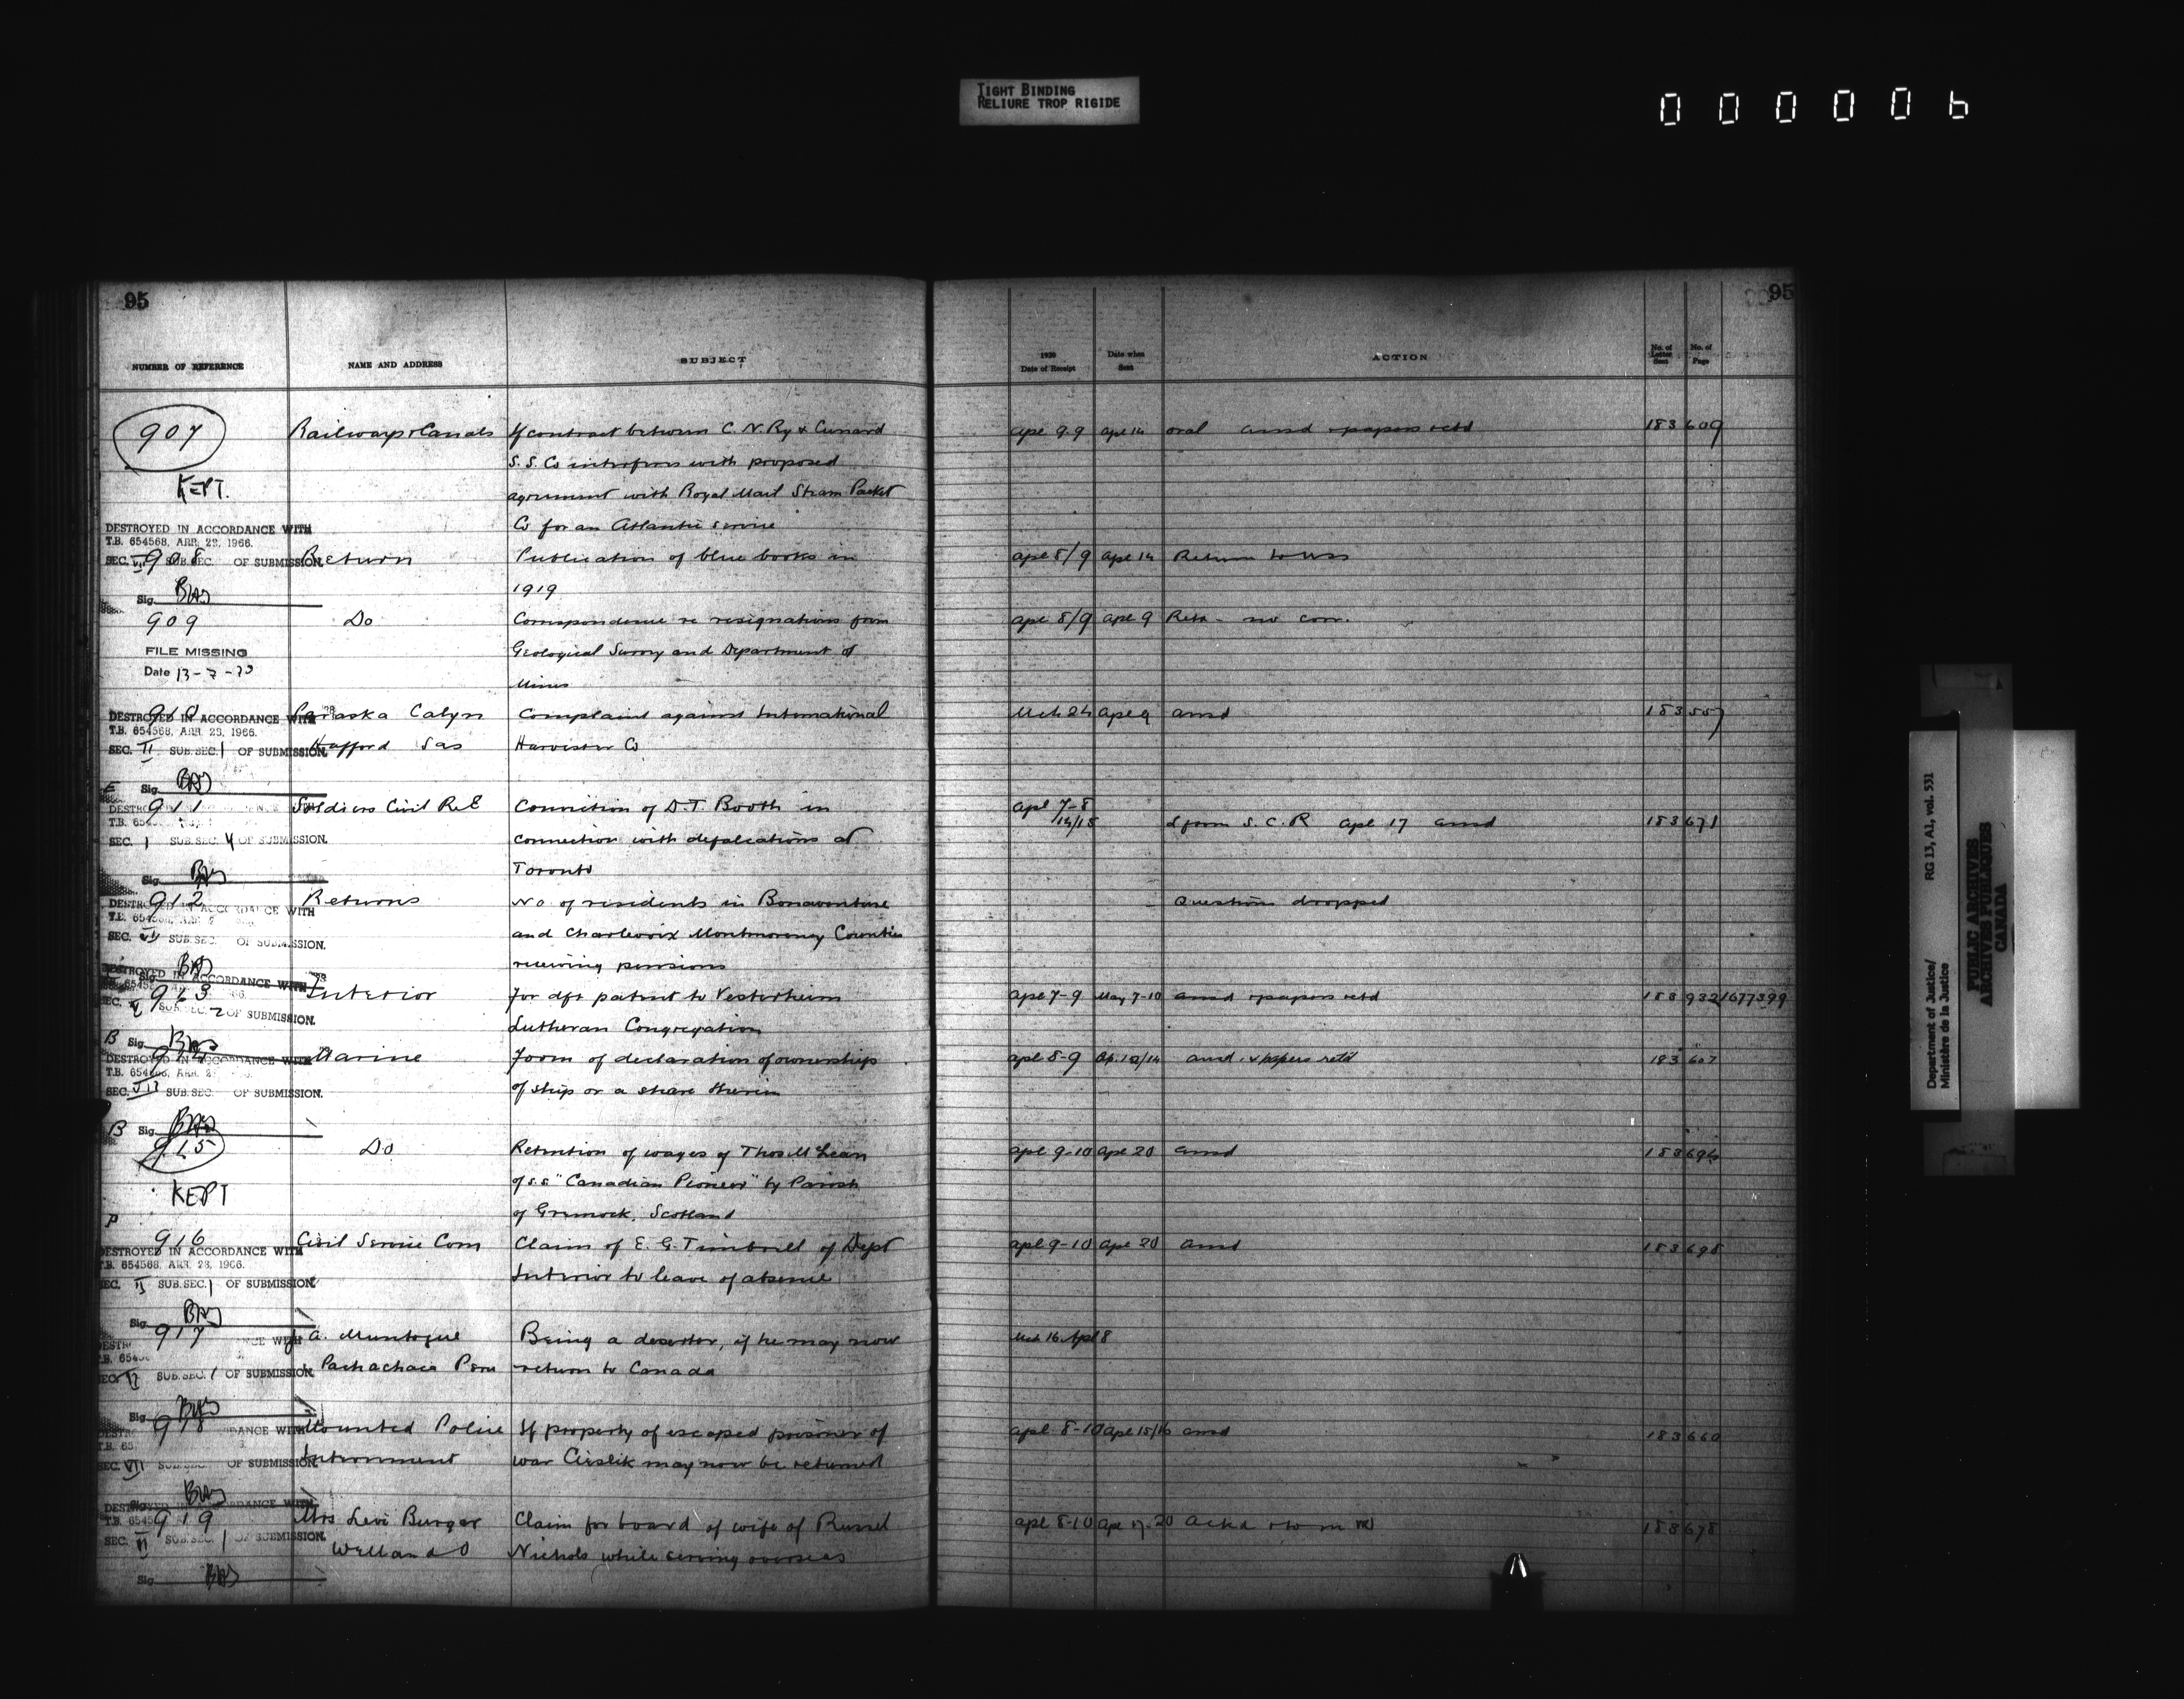 TIGHT BINDING
RELIURE TROP RIGIDE
000006
95
95
NUMBER OF REFERENCE NAME AND ADDRESS SUBJECT 1920 Date of Receipt Date when Sent ACTION No. of Letter Sent No. of Page
907 Railways & Canals If contract between C. N. Ry & Cunard Apl 9-9 Apl 14 oral ansd & papers retd 183 609
S. S. Co interferes with proposed
KEPT. agreement with Royal Mail Steam Packet
Co for an Atlantic service
DESTROYED IN ACCORDANCE WITH
T.B. 654568, APR. 23, 1966.
SEC. VII SUB.SEC. OF SUBMISSION.
908 Return Publication of blue books in Apl 8/9 Apl 14 Return to
1919
Sig.
909 Do Correspondence re resignations from Apl 8/9 Apl 9 Retn - no corr.
FILE MISSING Geological Survey and Department of
Date 13-7-70 Mines
DESTROYED IN ACCORDANCE WITH
T.B. 654568, APR. 23, 1966.
SEC. II SUB.SEC. 1 OF SUBMISSION.
910 Paraska Calyn Complaint against International Mch 24 Apl 9 ansd 183 557
Hafford Sas Harvester Co
Sig.
911 Soldiers Civil R.E Conviction of D.T. Booth in Apl 7-8
14/15 L from S. C. R Apl 17 ansd 183 671
SEC. 1 SUB.SEC. 4 OF SUBMISSION. connection with defalcations at
Sig. Toronto
912 Returns No. of residents in Bonaventure Questions dropped
SEC. VII SUB.SEC. OF SUBMISSION. and Charlevoix Montmorency Counties
receiving pensions
DESTROYED IN ACCORDANCE WITH
913 Interior For dft patent to Vesterheim Apl 7-9 May 7-10 ansd & papers retd 183 932 1677399
SUB.SEC. 2 OF SUBMISSION. Lutheran Congregation
B Sig.
914 Marine Form of declaration of ownership Apl 8-9 Ap. 12/14 ansd. & papers retd 183 607
DESTROYED IN ACCORDANCE WITH
SEC. VII SUB.SEC. OF SUBMISSION. of ship or a share therein
B Sig.
915 Do Retention of wages of Thos McLean Apl 9-10 Apl 20 ansd 183 694
of s.s "Canadian Pioneer" by Parish
KEPT of Greenock, Scotland
P
916 Civil Service Com Claim of E. G. Timbrell of Dept Apl 9-10 Apl 20 ansd 183 698
DESTROYED IN ACCORDANCE WITH
T.B. 654568, APR. 23, 1966.
SEC. II SUB.SEC. 1 OF SUBMISSION. Interior to leave of absence
Sig.
917 A. Muntogue Being a deserter, if he may now Mch 16 Apl 8
SUB.SEC. 1 OF SUBMISSION. Pachachaca Peru return to Canada
Sig.
918 Mounted Police If property of escaped prisoner of Apl 8-10 Apl 15/16 ansd 183 660
SEC. VII SUB.SEC. OF SUBMISSION. Internment war Cieslik may now be returned
Sig.
DESTROYED IN ACCORDANCE WITH
919 Mrs Levi Burger Claim for board of wife of Russel Apl 8-10 Apl 17-20 ackd 183 678
SEC. VI SUB.SEC. 1 OF SUBMISSION. Welland O Nichols while serving overseas
Sig.
Department of Justice/
Ministère de la Justice
RG 13, A1, vol. 531
PUBLIC ARCHIVES
ARCHIVES PUBLIQUES
CANADA